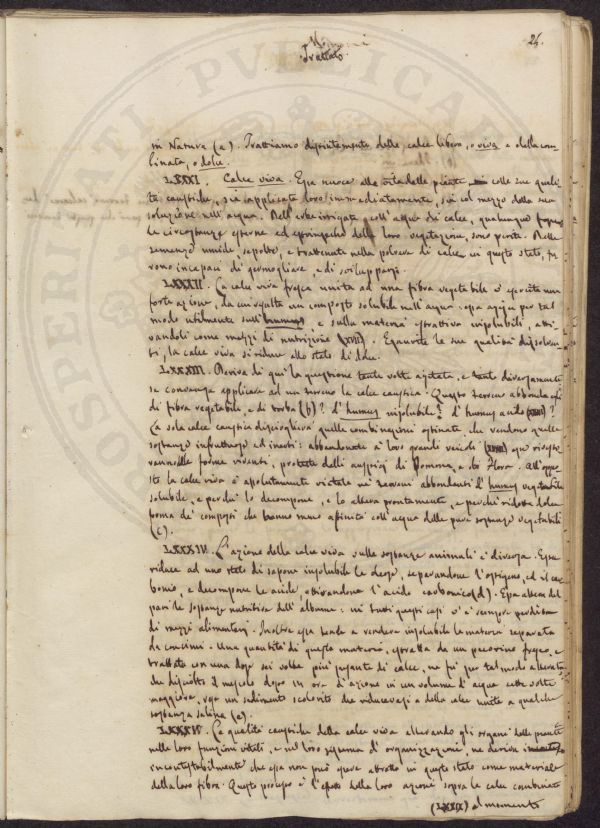 26.
Trattato
in Natura (a). Trattiamo distintamente della calce libera, o viva e della com
binata, o dolce.
LXXXI. Calce viva. Essa nuoce alla vita delle piante colle sue quali
tà caustiche, sia applicata loro immediatamente, sia col mezzo della sua
soluzione nell'acqua. Dell'erbe irrigate coll'acqua di calce, qualunque
le circostanze esterne ed estrinseche della loro vegetazione, sono perite. Delle
semenze umide, sepolte, e trattenute nella polvere di calce in questo stato, fu
rono incapaci di germogliare, e di svilupparsi.
LXXXII. La calce viva fresca unita ad una fibra vegetabile vi esercita una
forte azione, da cui risulta un composto solubile nell'acqua: essa agisce per tal
modo utilmente sull'humus, e sulla materia estrattiva insolubili, atti
vandoli come mezzi di nutrizione (XVII). Esaurite le sue qualità dissolven
ti, la calce viva si riduce allo stato di dolce.
LXXXIII. Deriva di qui la questione tante volte agitata, e tanto diversamente
se convenga applicare ad un terreno la calce caustica. Questo terreno abbonda egli
di fibra vegetabile, e di torba (b)? d'humus insolubile? d'humus acido?
La sola calce caustica discioglierà quelle combinazioni ostinate che rendono quelle
sostanze infruttuose ed inerti: abbandonate a' loro grandi veicoli esse rivesti
ranno le forme viventi, protette dalli auspicj di Pomona, e di Flora. All'oppo
sto la calce viva è assolutamente vietata ne' terreni abbondanti d'humus vegetabile
solubile, e perchè lo decompone, e lo altera prontamente, e perchè ridotta dolce
forma de' composti che hanno meno affinità coll'acqua delle pure sostanze vegetabili
(c).
LXXXIV. L'azione della calce viva sulle sostanze animali è diversa. Essa
riduce ad uno stato di sapone insolubile le oleose, separandone l'ossigeno, ed il car
bonio, e decompone le acide, attivandone l'acido carbonico (d). Essa altera del
pari le sostanze nutritive dell'albume: in tutti questi casi v'è sempre perdita
di mezzi alimentari. Inoltre essa tende a rendere insolubile la materia separata
da concimi. Una quantità di questa materia, estratta da un pecorino fresco, e
trattata con una dose sei volte più pesante di calce, ne fu per tal modo alterata
che disciolti il miscuglio dopo un ora di azione in un volume d'acqua cento volte
maggiore, non un sedimento scolorito che riducevasi a della calce unita a qualche
sostanza salina (e).
LXXXV. La qualità caustiche della calce viva alterando gli organi delle piante
nelle loro funzioni vitali, e nel loro sistema di organizzazione, ne deriva
incontestabilmente che essa non può essere attratta in questo stato come materiale
della loro fibra. Questo processo è l'effetto della loro azione sopra la calce combinata
(LXXIX) al momento